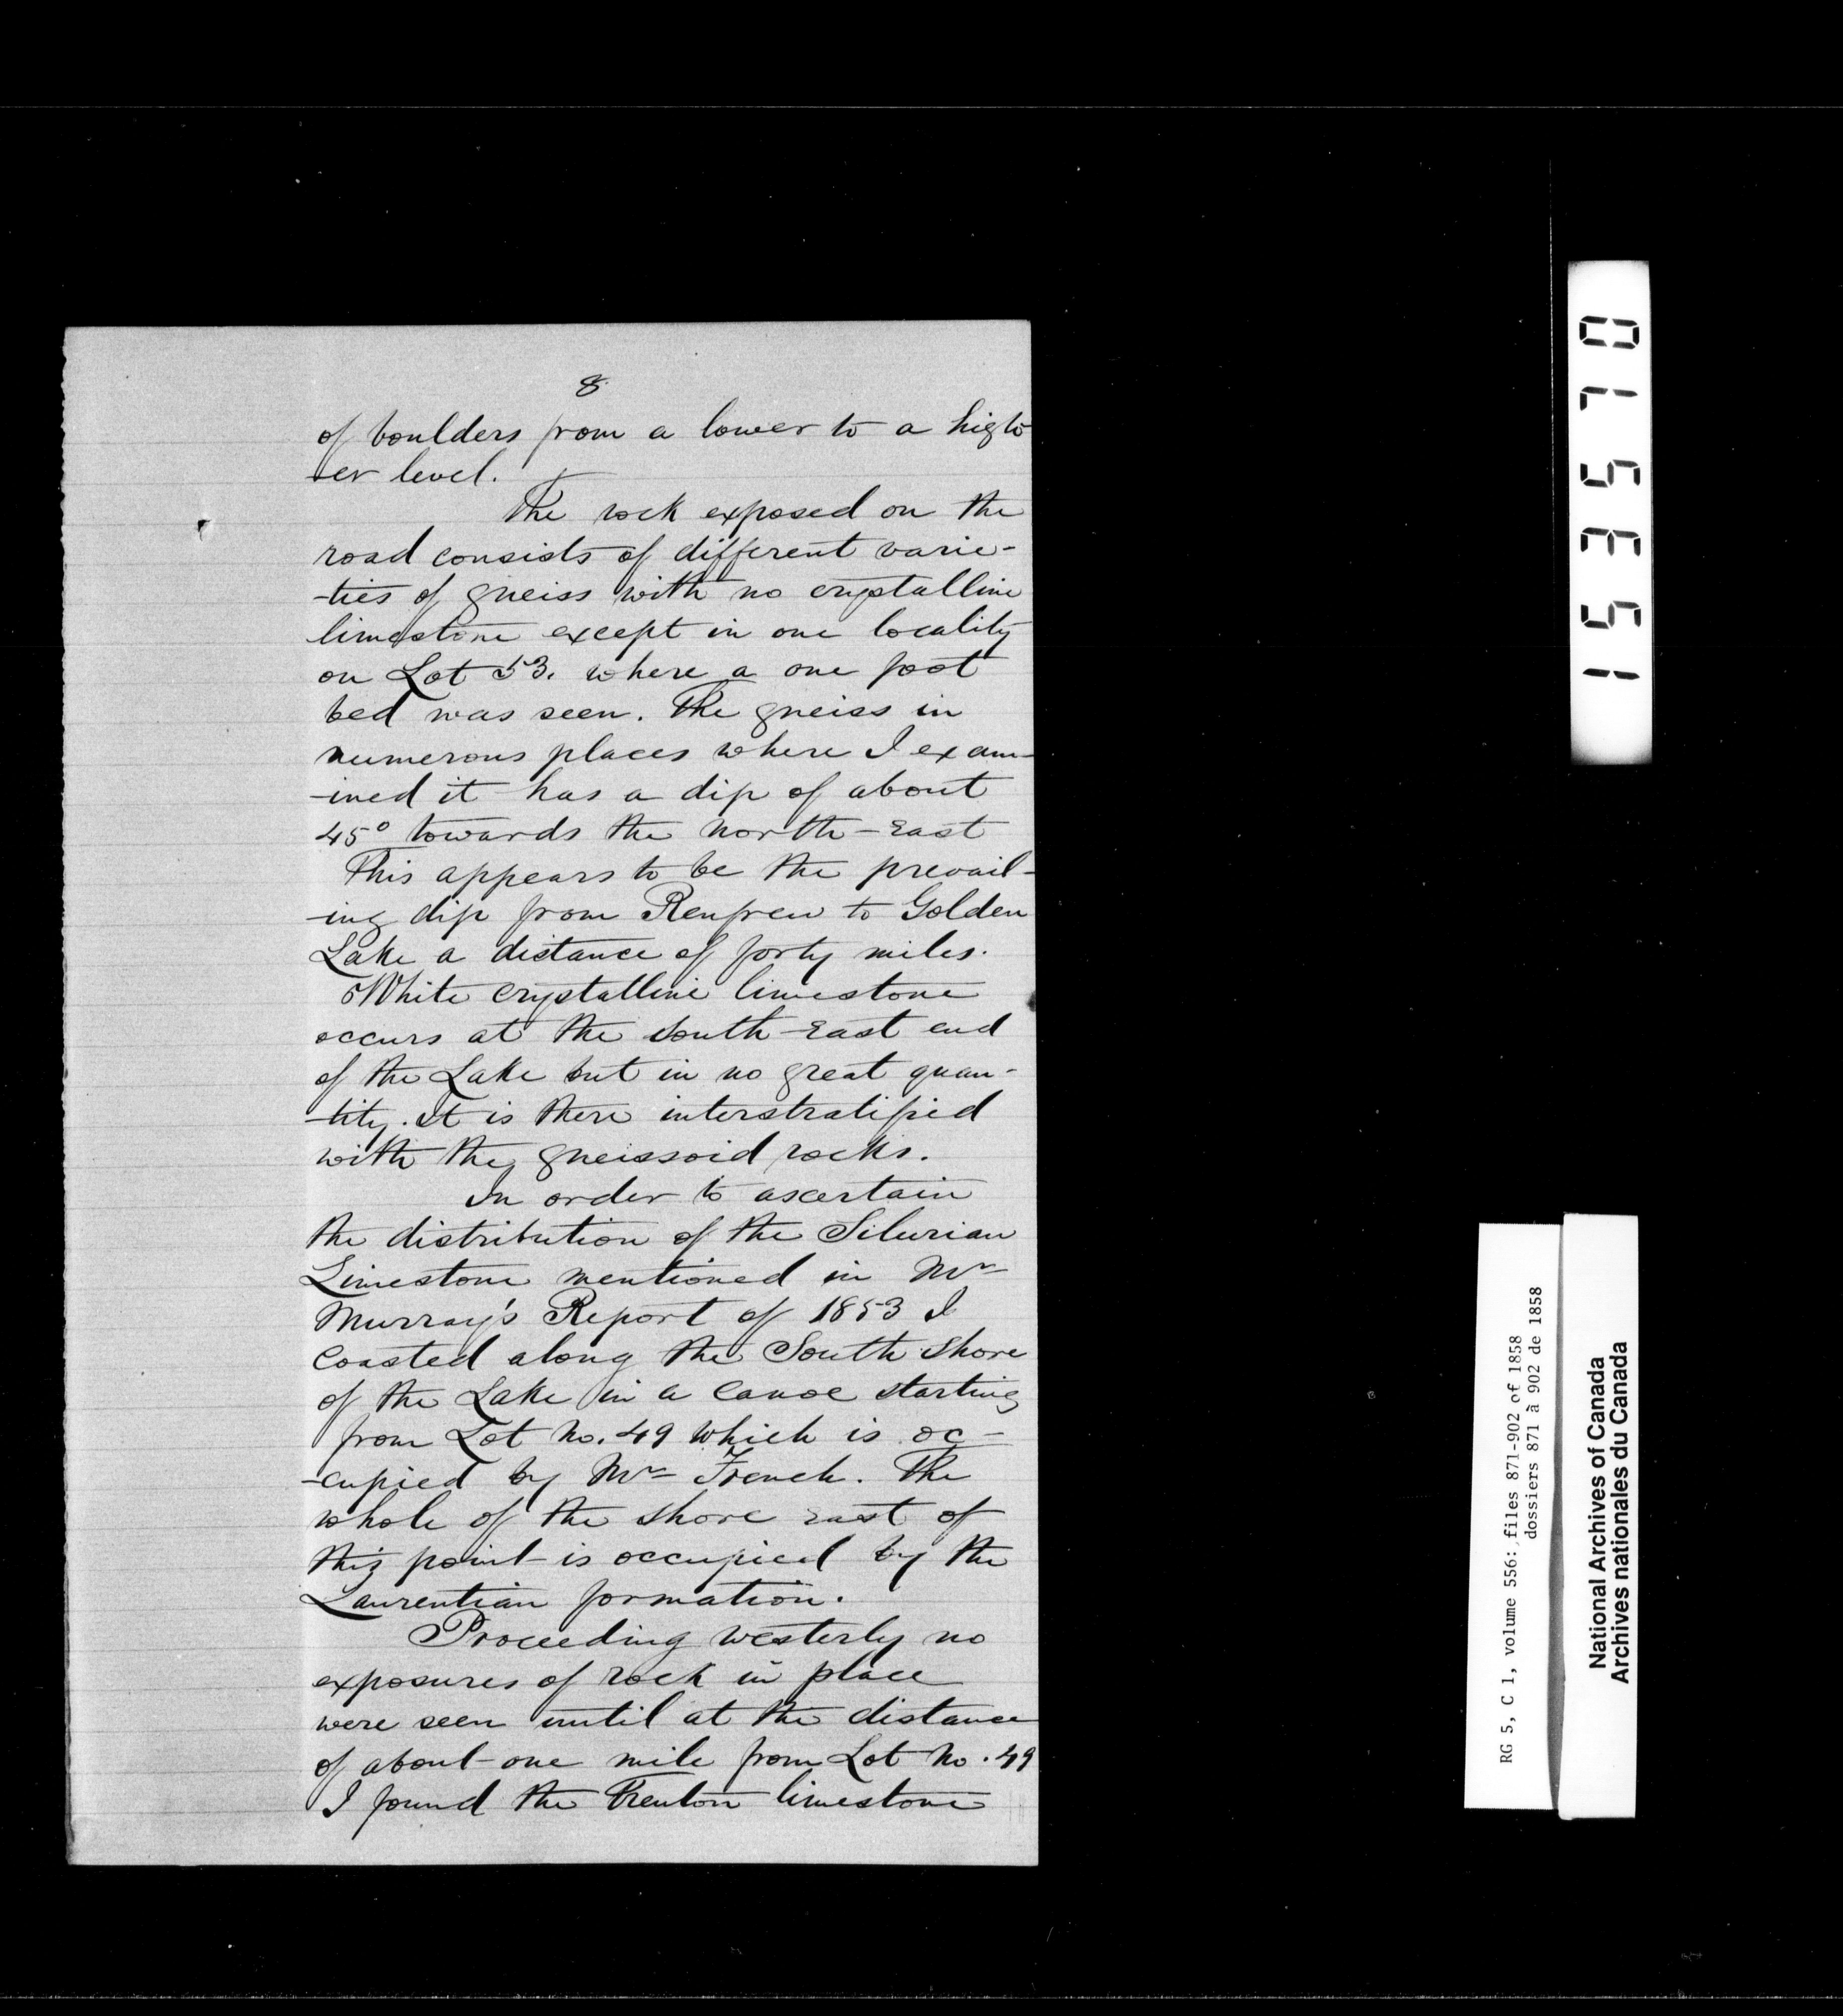 8
of boulders from a lower to a high
-er level.
The rock exposed on the
road consists of different varie-
-ties of gneiss with no crystalline
limestone except in one locality
on Lot 53. where a one foot
bed was seen. The gneiss in
numerous places where I exam-
-ined it has a dip of about
45° towards the north-East
This appears to be the prevail-
-ing dip from Renfrew to Golden
Lake a distance of forty miles.
White crystalline limestone
occurs at the South-East end
of the Lake but in no great quan-
-tity. It is there interstratified
with the gneissoid rocks.
In order to ascertain
the distribution of the Silurian
Limestone mentioned in Mr
Murray's Report of 1853 I
coasted along the South shore
of the Lake in a canoe starting
from Lot No. 49 which is oc-
-cupied by Mr French. The
whole of the shore East of
this point is occupied by the
Laurentian formation.
Proceeding westerly no
exposures of rock in place
were seen until at the distance
of about one mile from Lot No. 49
I found the Trenton limestone
153570
RG 5, C 1, volume 556: files 871-902 of 1858
dossiers 871 à 902 de 1858
National Archives of Canada
Archives nationales du Canada